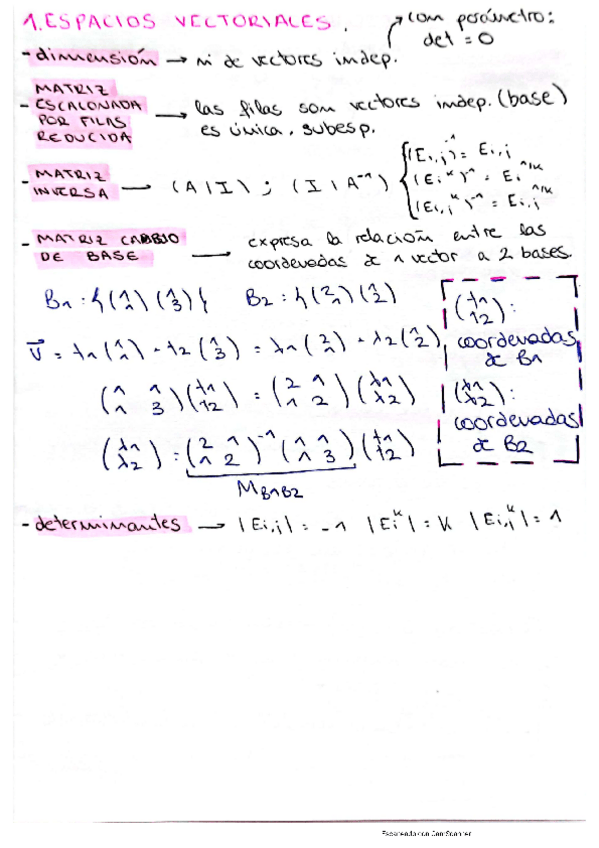 1. ESPACIOS VECTORIALES.
con parámetro:
det = 0
- dimensión → nº de vectores indep.
- MATRIZ ESCALONADA POR FILAS REDUCIDA → las filas son vectores indep. (base)
es única. subesp.
- MATRIZ INVERSA → (A|I) ; (I|A⁻¹)
(Ei,j)⁻¹ = Ei,j
(Ei^k)⁻¹ = Ei^1/k
- MATRIZ CAMBIO DE BASE → expresa la relación entre las
coordenadas de 1 vector a 2 bases.
B1 : {(1 1) (1 3)} B2 : {(2 1) (1 2)}
v⃗ = t1 (1 1) + t2 (1 3) = λ1 (2 1) + λ2 (1 2)
(1 1; 1 3) (t1 t2) = (2 1; 1 2) (λ1 λ2)
(λ1 λ2) = (2 1; 1 2)⁻¹ (1 1; 1 3) (t1 t2)
M B1B2
(t1 t2):
coordenadas
de B1
(λ1 λ2):
coordenadas
de B2
- determinantes → |Ei,j| = -1 |Ei^k| = k |Ei,j^k| = 1
Escaneado con CamScanner